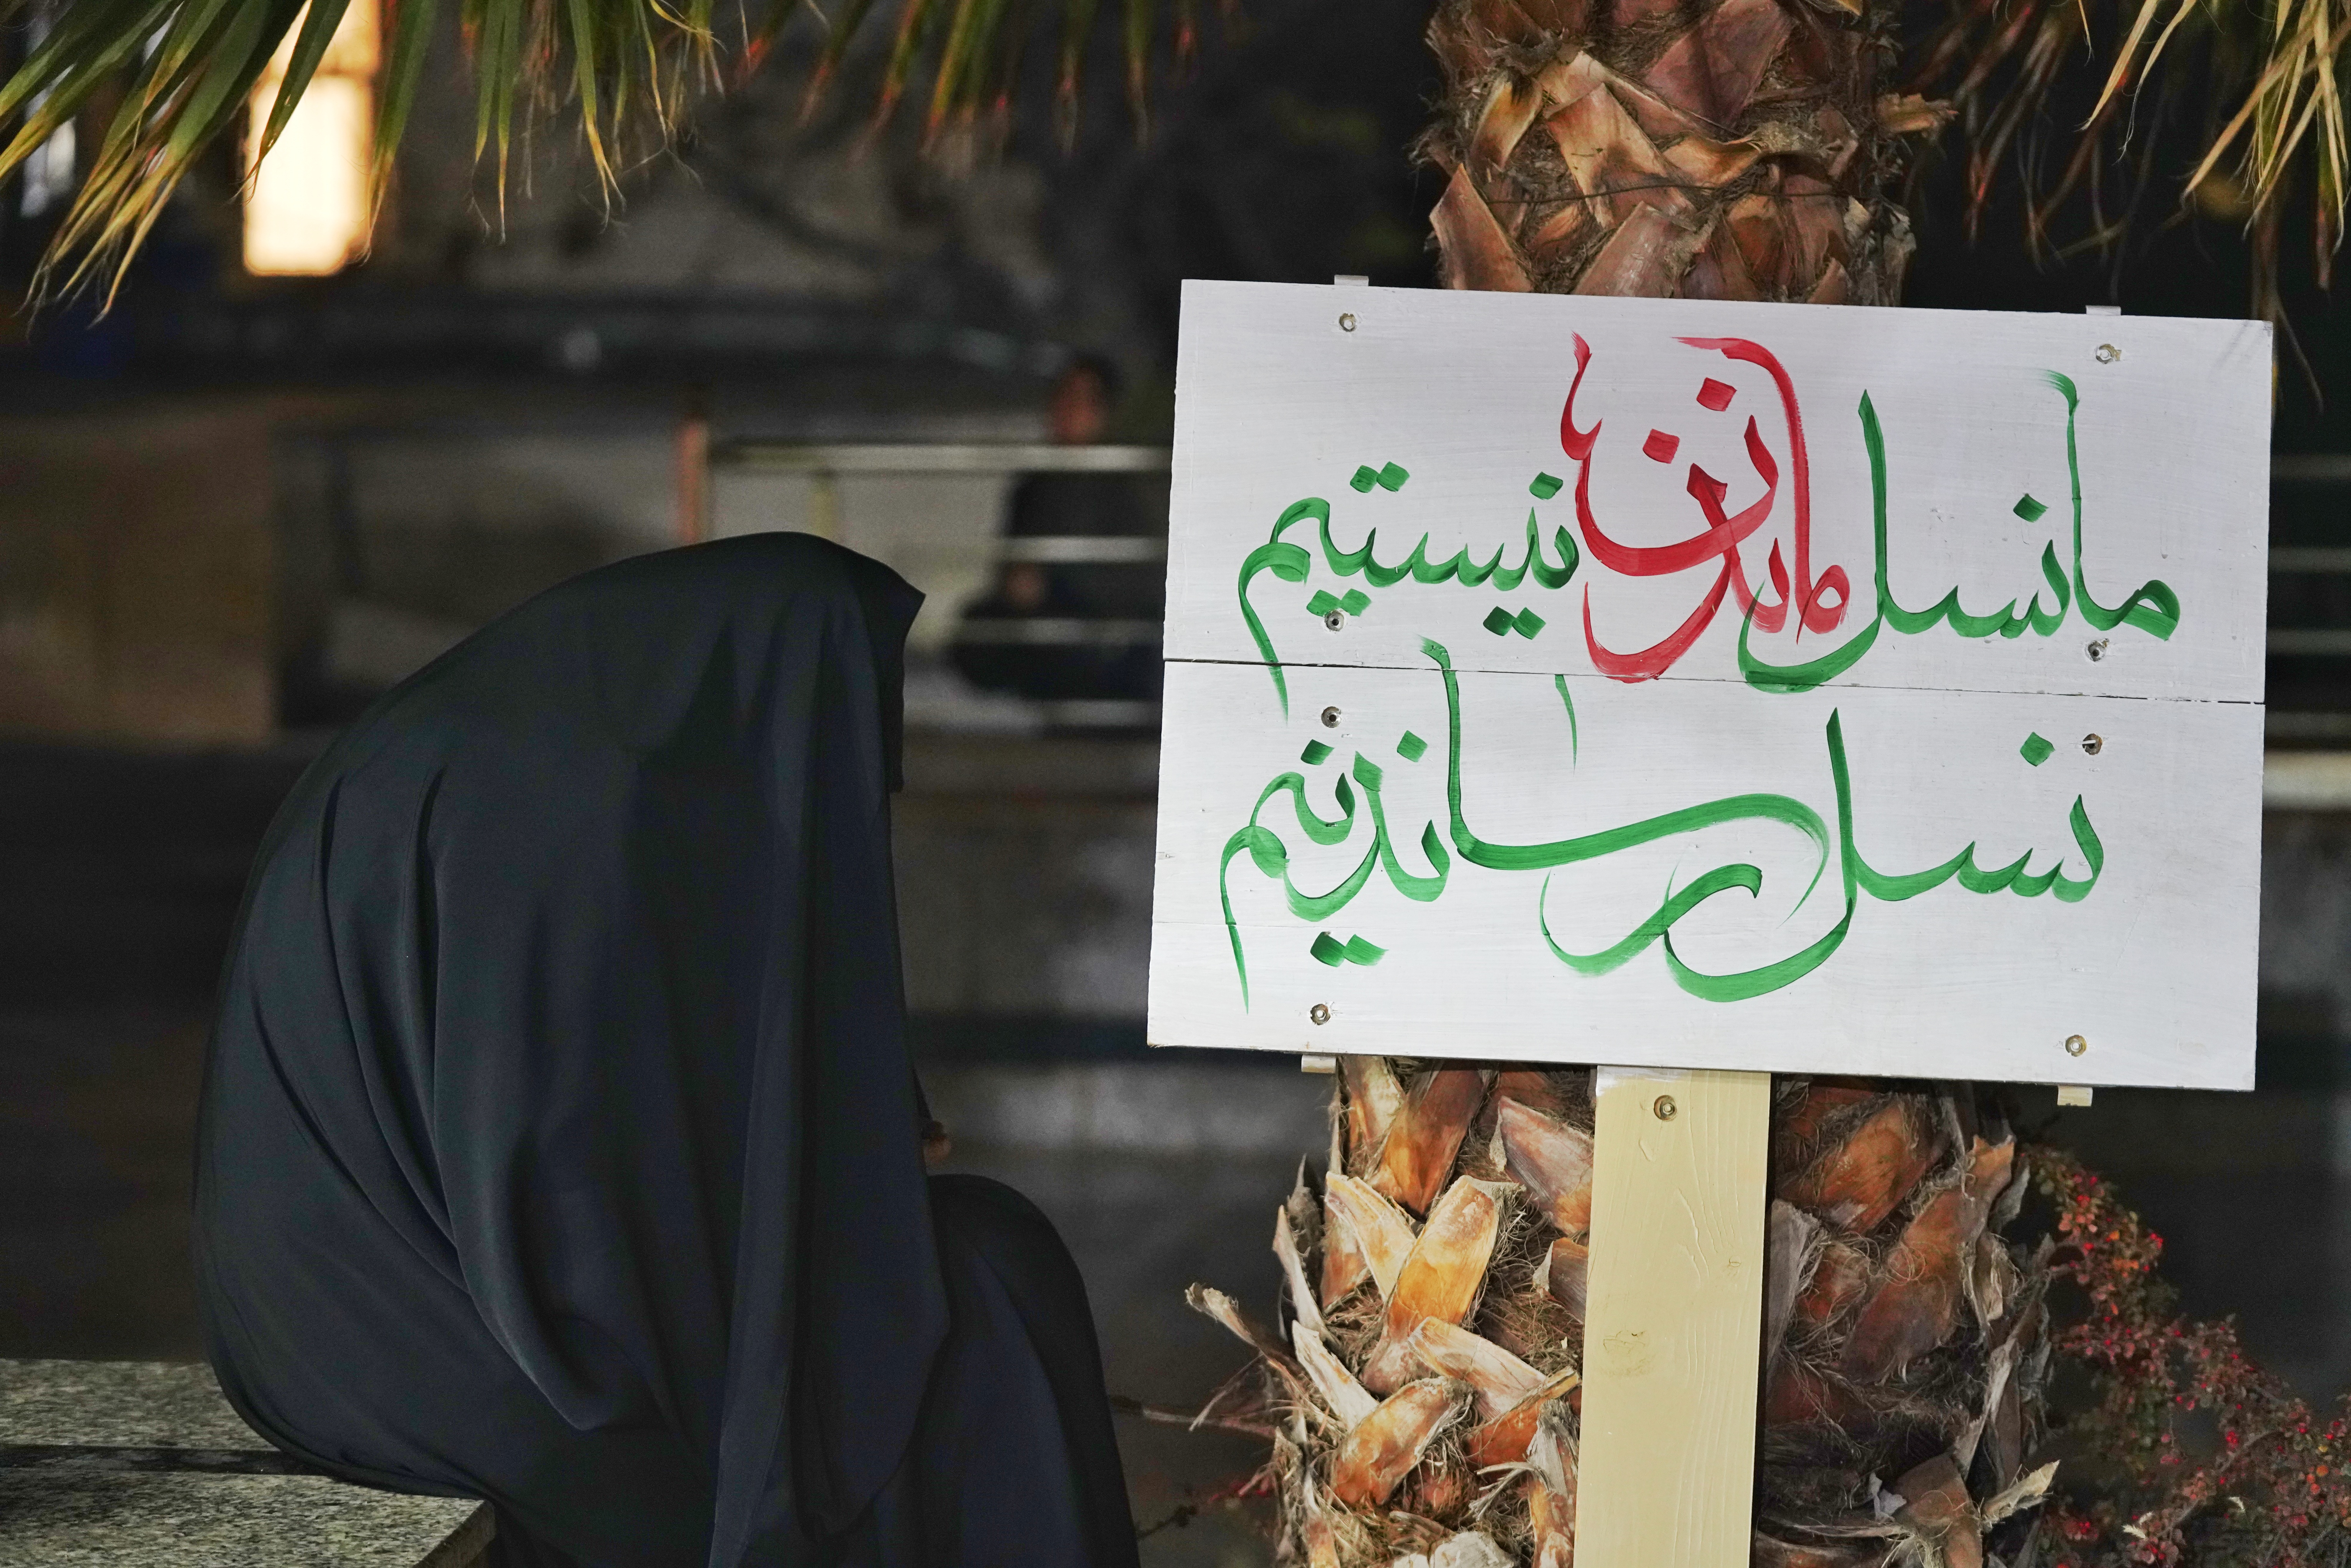 ما نسل ماندن نیستیم
نسل رساندنیم